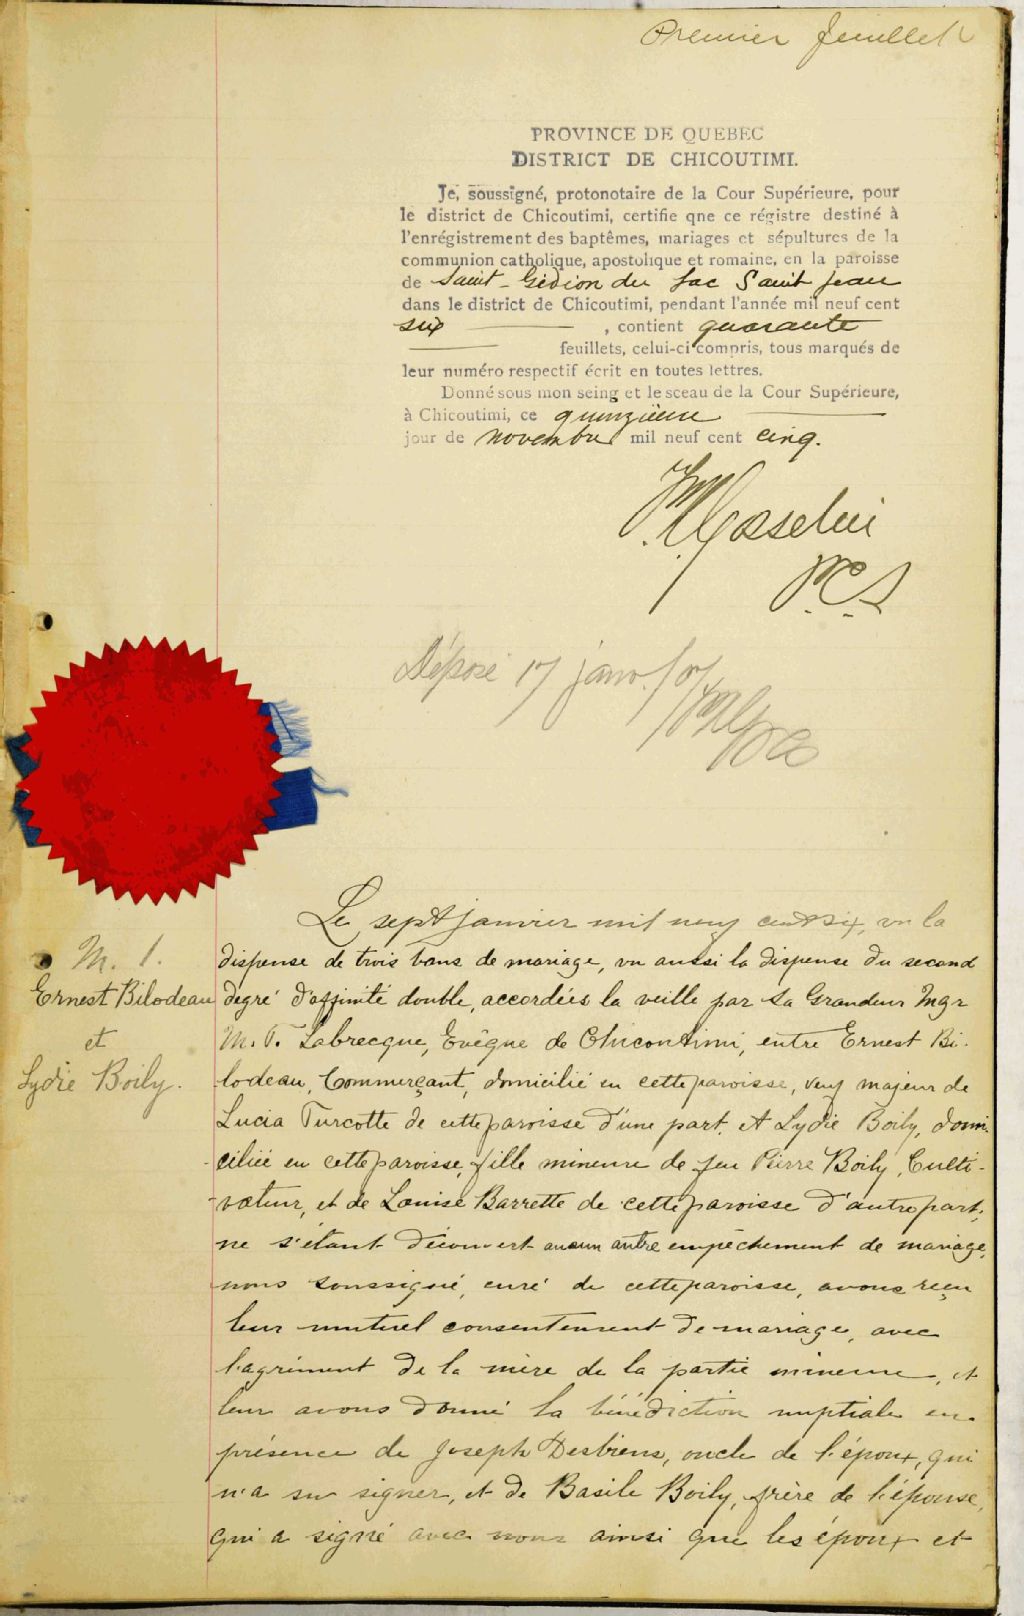 Premier feuillet
PROVINCE DE QUEBEC
DISTRICT DE CHICOUTIMI.
Je, soussigné, protonotaire de la Cour Supérieure, pour
le district de Chicoutimi, certifie qne ce régistre destiné à
l'enrégistrement des baptêmes, mariages et sépultures de la
communion catholique, apostolique et romaine, en la paroisse
de Saint-Gédion du Lac Saint Jean
dans le district de Chicoutimi, pendant l'année mil neuf cent
six , contient quarante
feuillets, celui-ci compris, tous marqués de
leur numéro respectif écrit en toutes lettres.
Donné sous mon seing et le sceau de la Cour Supérieure,
à Chicoutimi, ce quinzième
jour de novembre mil neuf cent cinq.
P.C.S
Déposé 17 janv./07
M. 1.
Ernest Bilodeau
et
Lydie Boily.
Le sept janvier mil neuf cent six, vu la
dispense de trois bans de mariage, vu aussi la dispense du second
degré d'affinité double, accordées la veille par Sa Grandeur Mgr
M. T. Labrecque, Evêque de Chicoutimi, entre Ernest Bi-
lodeau, Commerçant, domicilié en cette paroisse, veuf majeur de
Lucia Turcotte de cette paroisse d'une part. et Lydie Boily, domi-
ciliée en cette paroisse, fille mineure de feu Pierre Boily, Culti-
vateur, et de Louise Barrette de cette paroisse d'autre part;
ne s'étant découvert aucun autre empêchement de mariage,
nous soussigné, curé de cette paroisse, avons reçu
leur mutuel consentement de mariage, avec
l'agrément de la mère de la partie mineure, et
leur avons donné la bénédiction nuptiale en
présence de Joseph Desbiens, oncle de l'époux, qui
n'a su signer, et de Basile Boily, frère de l'épouse,
qui a signé avec nous ainsi que les époux et